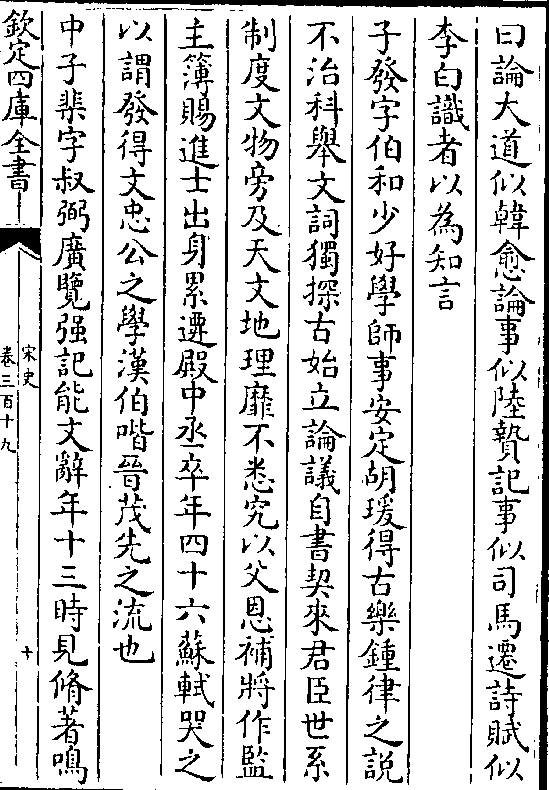 曰論大道似韓愈論事似陸贄記事似司馬遷詩賦似
李白識者以為知言
子發字伯和少好學師事安定胡瑗得古樂鍾律之説
不治科舉文詞獨探古始立論議自書契來君臣世系
制度文物旁及天文地理靡不悉究以父恩補將作監
主簿賜進士出身累遷殿中丞卒年四十六蘇軾哭之
以謂發得文忠公之學漢伯喈晉茂先之流也
中子棐字叔弼廣覽强記能文辭年十三時見脩著鳴
欽定四庫全書
宋史
卷三百十九
十